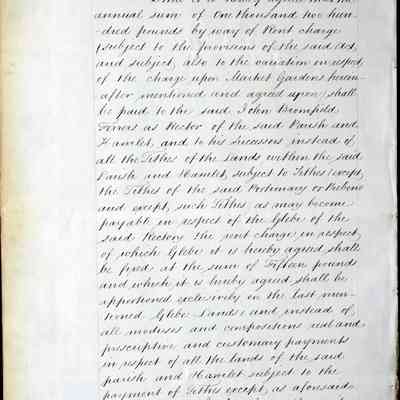 annual sum of One thousand two hun-
dred pounds by way of Rent charge
(subject to the provisions of the said Act,
and subject, also to the variation in respect
of the charge upon Market Gardens herein-
after mentioned and agreed upon) shall
be paid to the said John Bromfield
Ferrers as Rector of the said Parish and
Hamlet, and to his Successors instead of
all the Tithes of the Lands within the said
Parish and Hamlet, subject to Tithes (except,
the Tithes of the said Portionary or Prebend
and except, such Tithes, as may become
payable in respect of the Glebe of the
said Rectory the rent charge in respect,
of which Glebe it is hereby agreed shall
be fixed at the sum of Fifteen pounds
and which it is hereby agreed shall be
apportioned exclusively on the last men-
tioned Glebe Lands) and instead of,
all moduses and compositions real and
prescriptive and customary payments
in respect of all the lands of the said
parish and Hamlet subject to the
payment of Tithes except, as aforesaid